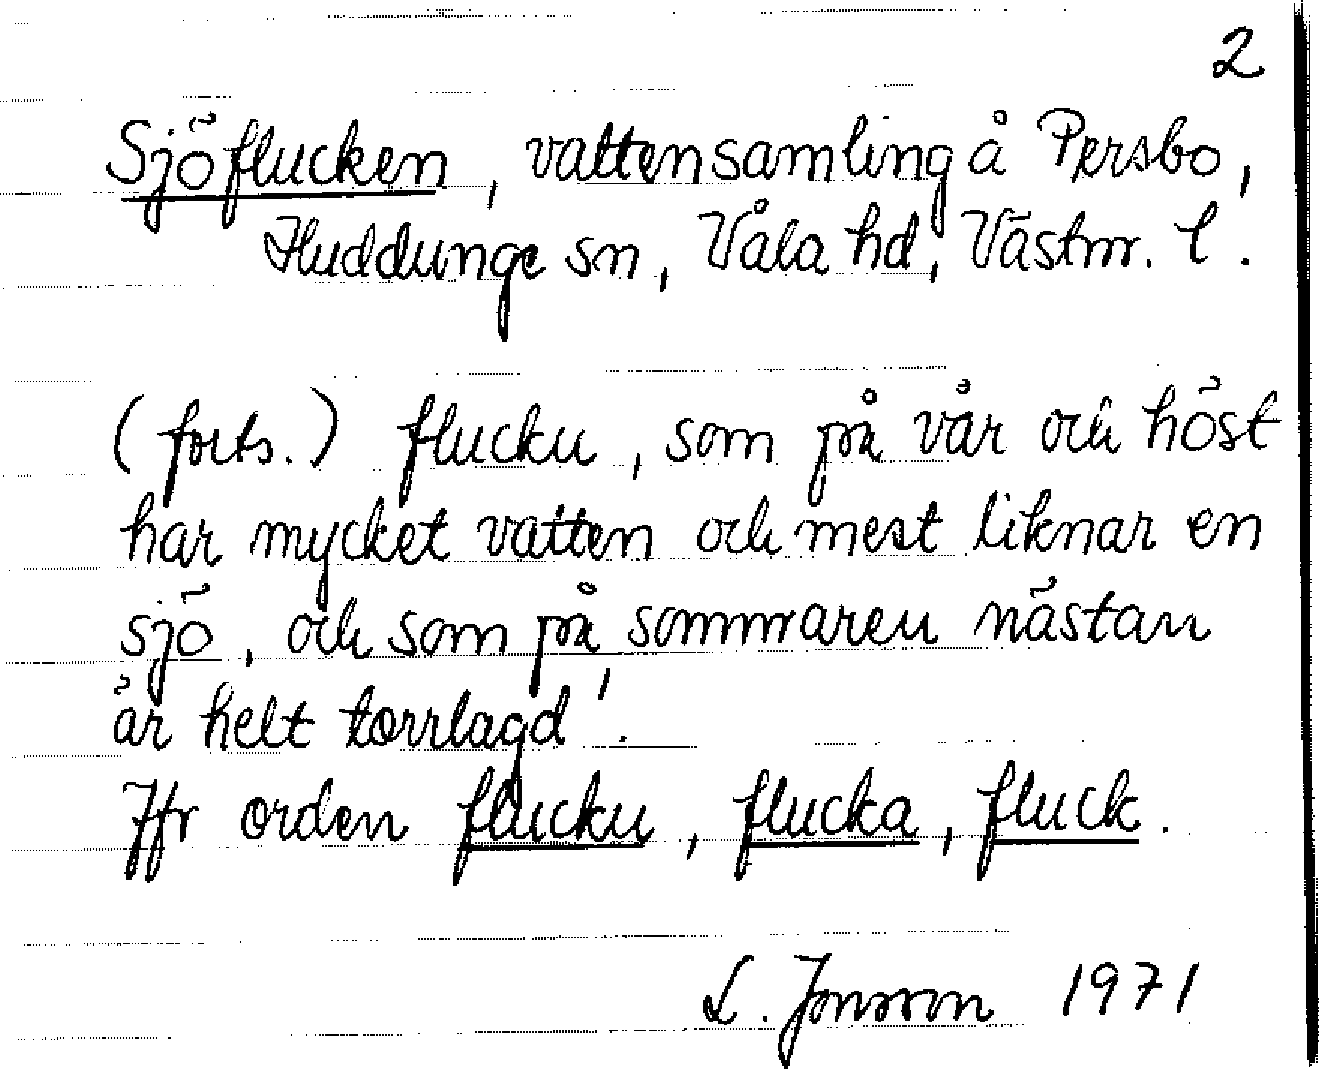 2
Sjöflucken, vattensamling å Persbo,
Huddunge sn, Våla hd, Västm. l.
(forts.) flucku, som på vår och höst
har mycket vatten och mest liknar en
sjö, och som på sommaren nästan
är helt torrlagd'.
Jfr orden flucku, flucka, fluck.
L. Jonsson 1971